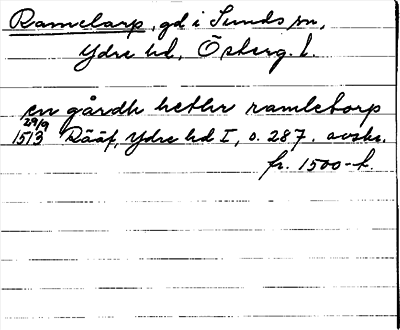 Ramletorp, gd i Sunds sn,
Ydre hd, Österg. l.
en gårdh hether ramletorp
29/9
1513 Rääf, Ydre hd I, s. 287. avskr.
fr. 1500-t.